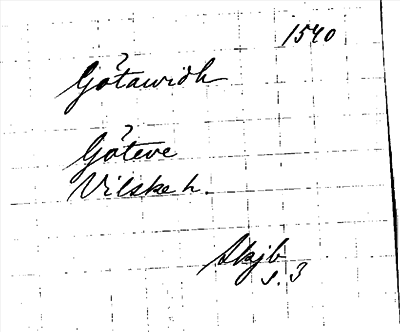 1540
Götawidh
Göteve
Vilske h.
Skjb
s. 3